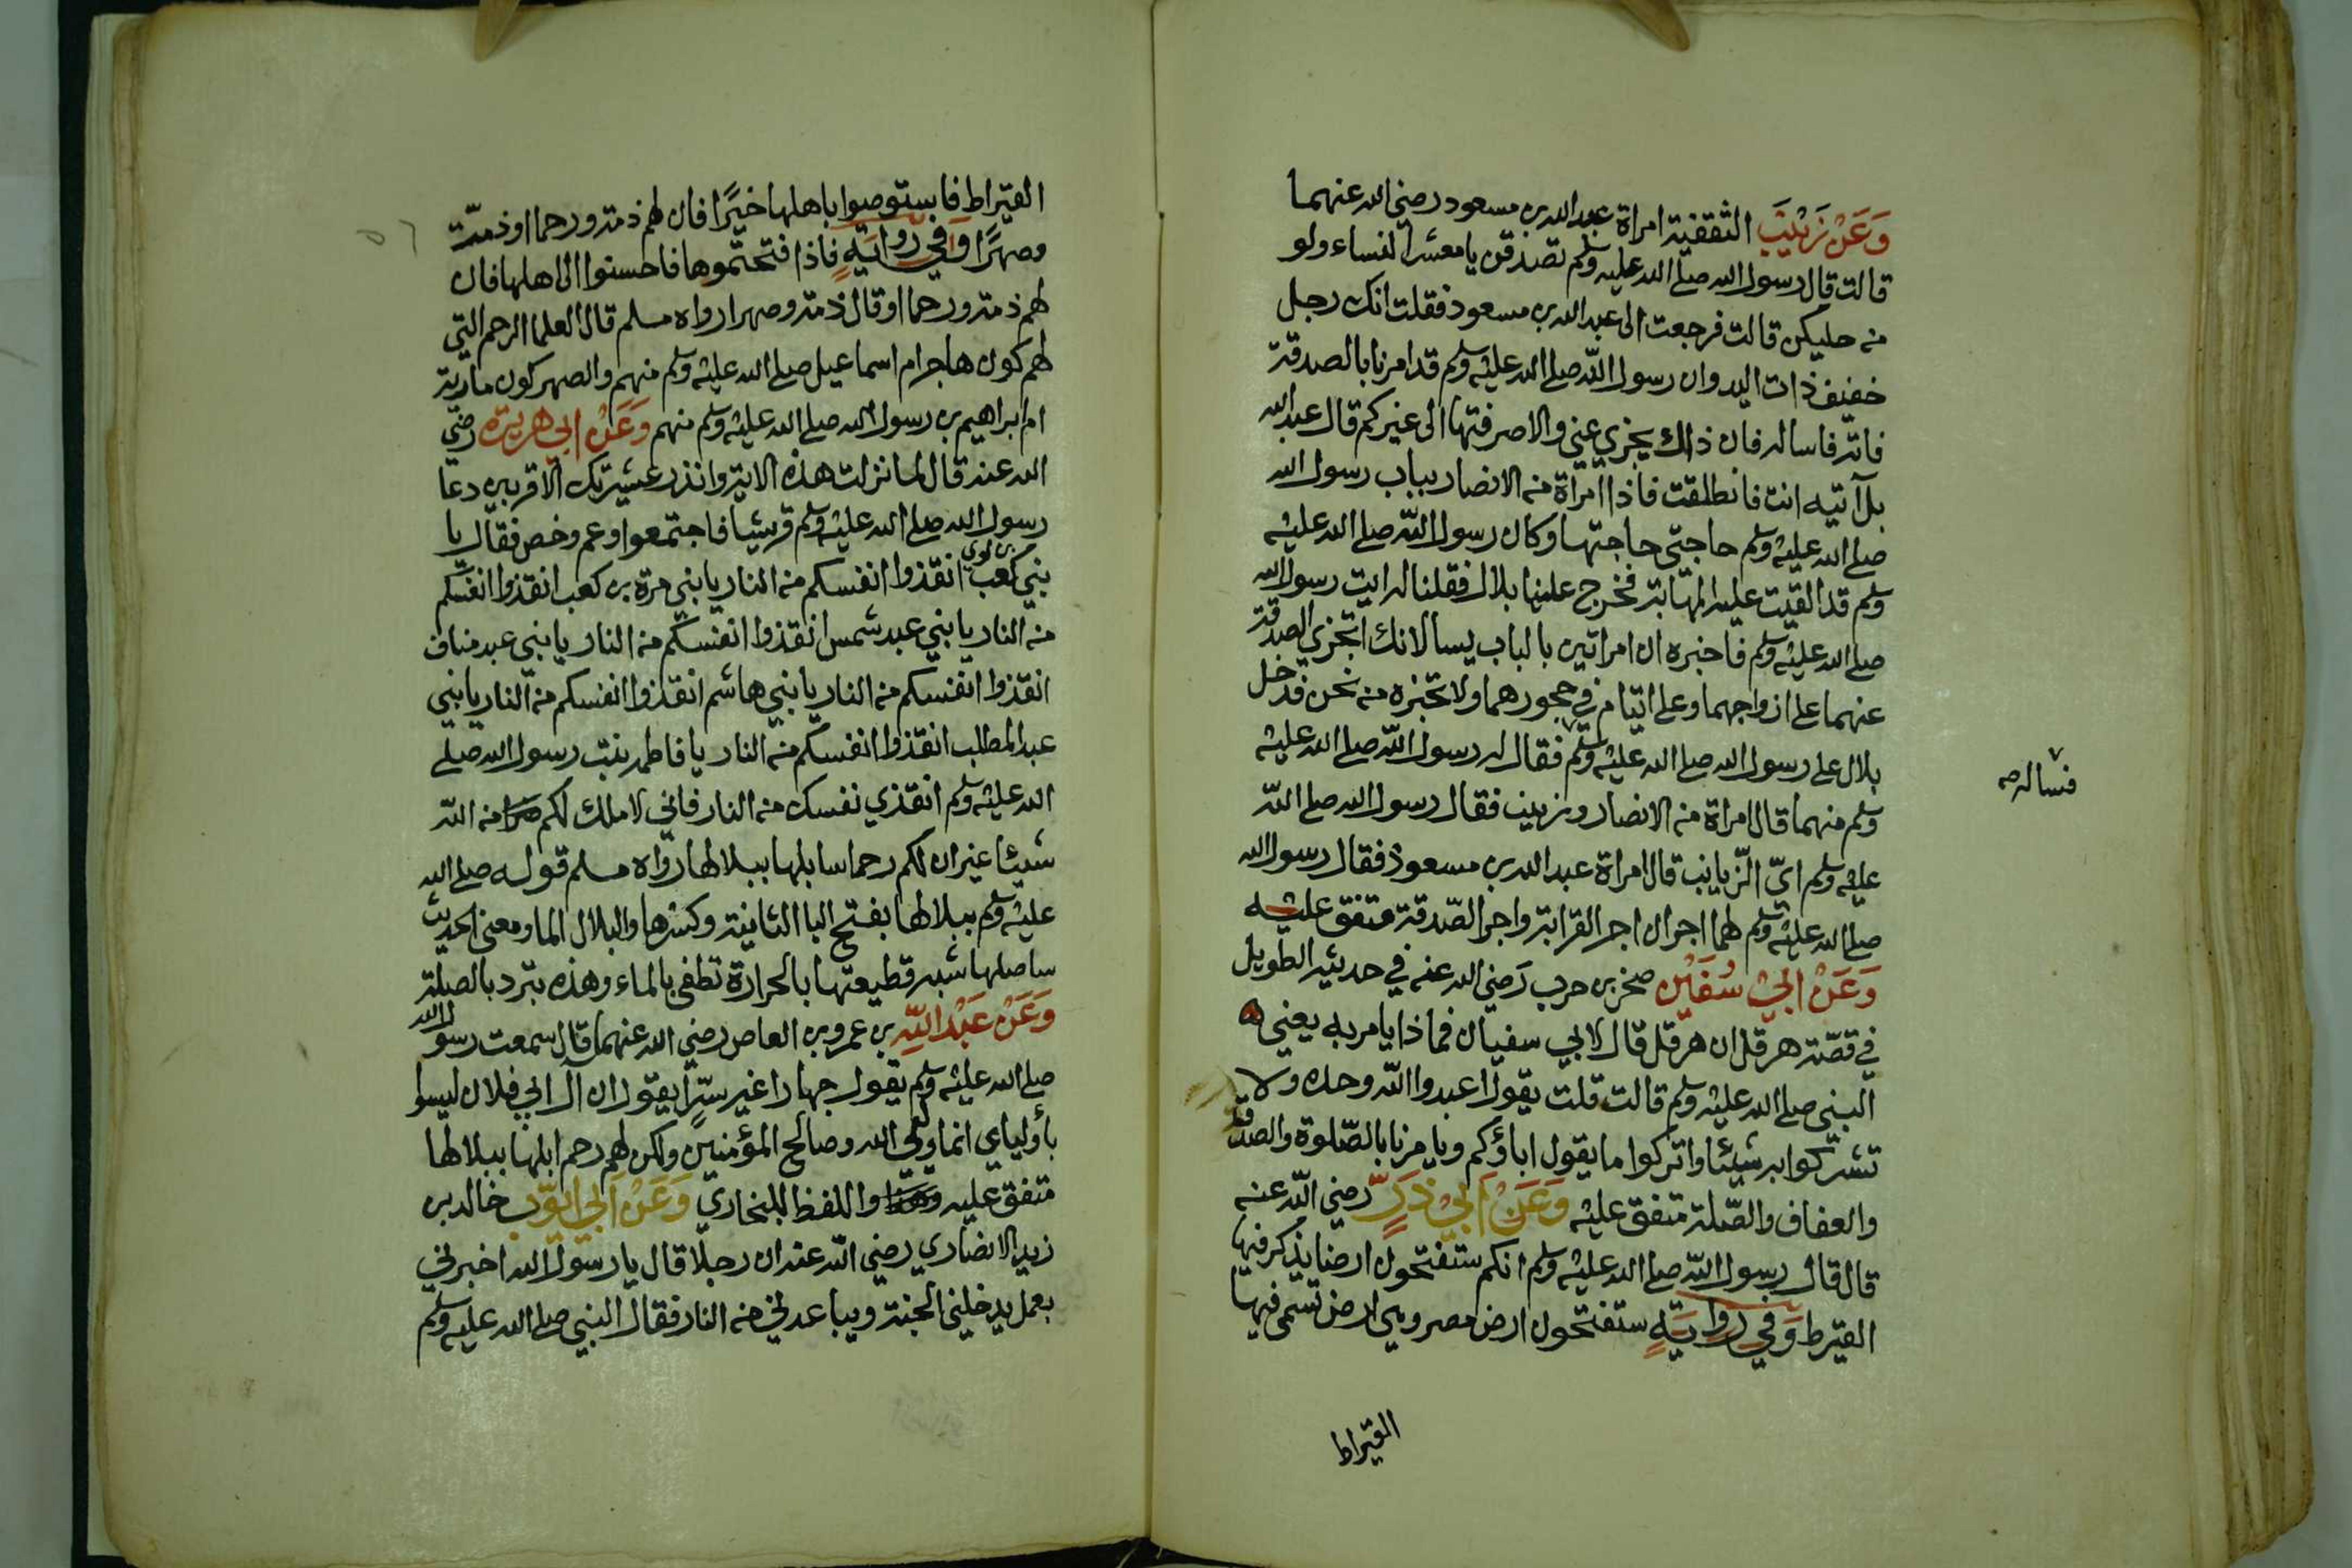 وَعَنْ زَيْنَبَ الثقفية امراة عبد الله بن مسعود رضي الله عنهما
قالت قال رسول الله صلى الله عليه وسلم تصدقن يا معشر النساء ولو
من حليكن قالت فرجعت الى عبد الله بن مسعود فقلت انك رجل
خفيف ذات اليد وان رسول الله صلى الله عليه وسلم قد امرنا بالصدقة
فاته فاساله فان ذلك يجزي عني والا صرفتها الى غيركم قال عبد الله
بل آتيه انت فانطلقت فاذا امراة من الانصار بباب رسول الله
صلى الله عليه وسلم حاجتي حاجتها وكان رسول الله صلى الله عليه
وسلم قد القيت عليه المهابة فخرج علينا بلال فقلنا له ايت رسول الله
صلى الله عليه وسلم فاخبره ان امراتين بالباب يسالانك اتجزي الصدقة
عنهما على ازواجهما وعلى ايتام في حجورهما ولا تخبره من نحن فدخل
بلال على رسول الله صلى الله عليه وسلم فقال له رسول الله صلى الله عليه
فساله صح
وسلم من هما قال امراة من الانصار وزينب فقال رسول الله صلى الله
عليه وسلم ايّ الزيانب قال امراة عبد الله بن مسعود فقال رسول الله
صلى الله عليه وسلم لهما اجران اجر القرابة واجر الصدقة متفق عليه
وَعَنْ ابي سُفَيْن صخر بن حرب رضي الله عنه في حديثه الطويل
في قصّة هرقل ان هرقل قال لابي سفيان فماذا يامر به يعني
النبي صلى الله عليه وسلم قالت قلت يقول اعبدوا الله وحده ولا
تشركوا به شيئا واتركوا ما يقول اباؤكم ويامرنا بالصّلوة والصدقة
والعفاف والصّلة متفق عليه وَعَنْ اَبِيْ ذَرٍّ رضي الله عنه
قال قال رسول الله صلى الله عليه وسلم انكم ستفتحون ارضا يذكر فيها
القيرط وَفي رواية ستفتحون ارض مصر وهي ارض تسمى فيها
القيراط
القيراط فاستوصوا باهلها خيرًا فان لهم ذمة ورحما او ذمّة
وصهرًا وَفي رواية فاذا فتحتموها فاحسنوا الى اهلها فان
لهم ذمة ورحما او قال ذمة وصهرا رواه مسلم قال العلما الرحم التي
لهم كون هاجر ام اسماعيل صلى الله عليه وسلم منهم والصهر كون مارية
ام ابراهيم بن رسول الله صلى الله عليه وسلم منهم وَعَنْ ابي هريرة رضي
الله عنه قال لما نزلت هذه الاية وانذر عشيرتك الاقربين دعا
رسول الله صلى الله عليه وسلم قريشا فاجتمعوا وعم وخص فقال يا
بني كعب بن لوي انقذوا انفسكم من النار يا بني مرة بن كعب انقذوا انفسكم
من النار يا بني عبد شمس انقذوا انفسكم من النار يا بني عبد مناف
انقذوا انفسكم من النار يا بني هاشم انقذوا انفسكم من النار يا بني
عبد المطلب انقذوا انفسكم من النار يا فاطمة بنت رسول الله صلى
الله عليه وسلم انقذي نفسك من النار فاني لا املك لكم من الله
شيئا غير ان لكم رحما سابلها ببلالها رواه مسلم قوله صلى الله
عليه وسلم ببلالها بفتح البا الثانية وكسرها والبلال الما ومعنى الحديث
ساصلها شبه قطيعتها بالحرارة تطفى بالماء وهذه تبرد بالصلة
وَعَنْ عَبْدِ اللهِ بن عمرو بن العاص رضي الله عنهما قال سمعت رسول الله
صلى الله عليه وسلم يقول جهارا غير سرّ يقول ان آل ابي فلان ليسوا
بأوليآي انما وليي الله وصالح المؤمنين ولكن لهم رحم ابلها ببلالها
متفق عليه واللفظ للبخاري وَعَنْ اَبي ايّوب خالد بن
زيد الانصاري رضي الله عنه ان رجلا قال يا رسول الله اخبرني
بعمل يدخلني الجنة ويباعدني من النار فقال النبي صلى الله عليه وسلم